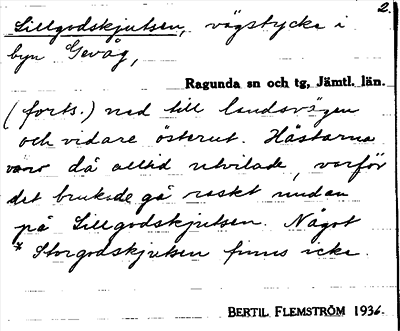 2.
Lillgodskjutsen, vägstycke i
byn Gevåg,
Ragunda sn och tg, Jämtl. län.
(forts.) ned till landsvägen
och vidare österut. Hästarna
voro då alltid utvilade, varför
det brukade gå raskt undan
på Lillgodskjutsen. Något
* Storgodskjutsen finns icke.
BERTIL FLEMSTRÖM 1936.